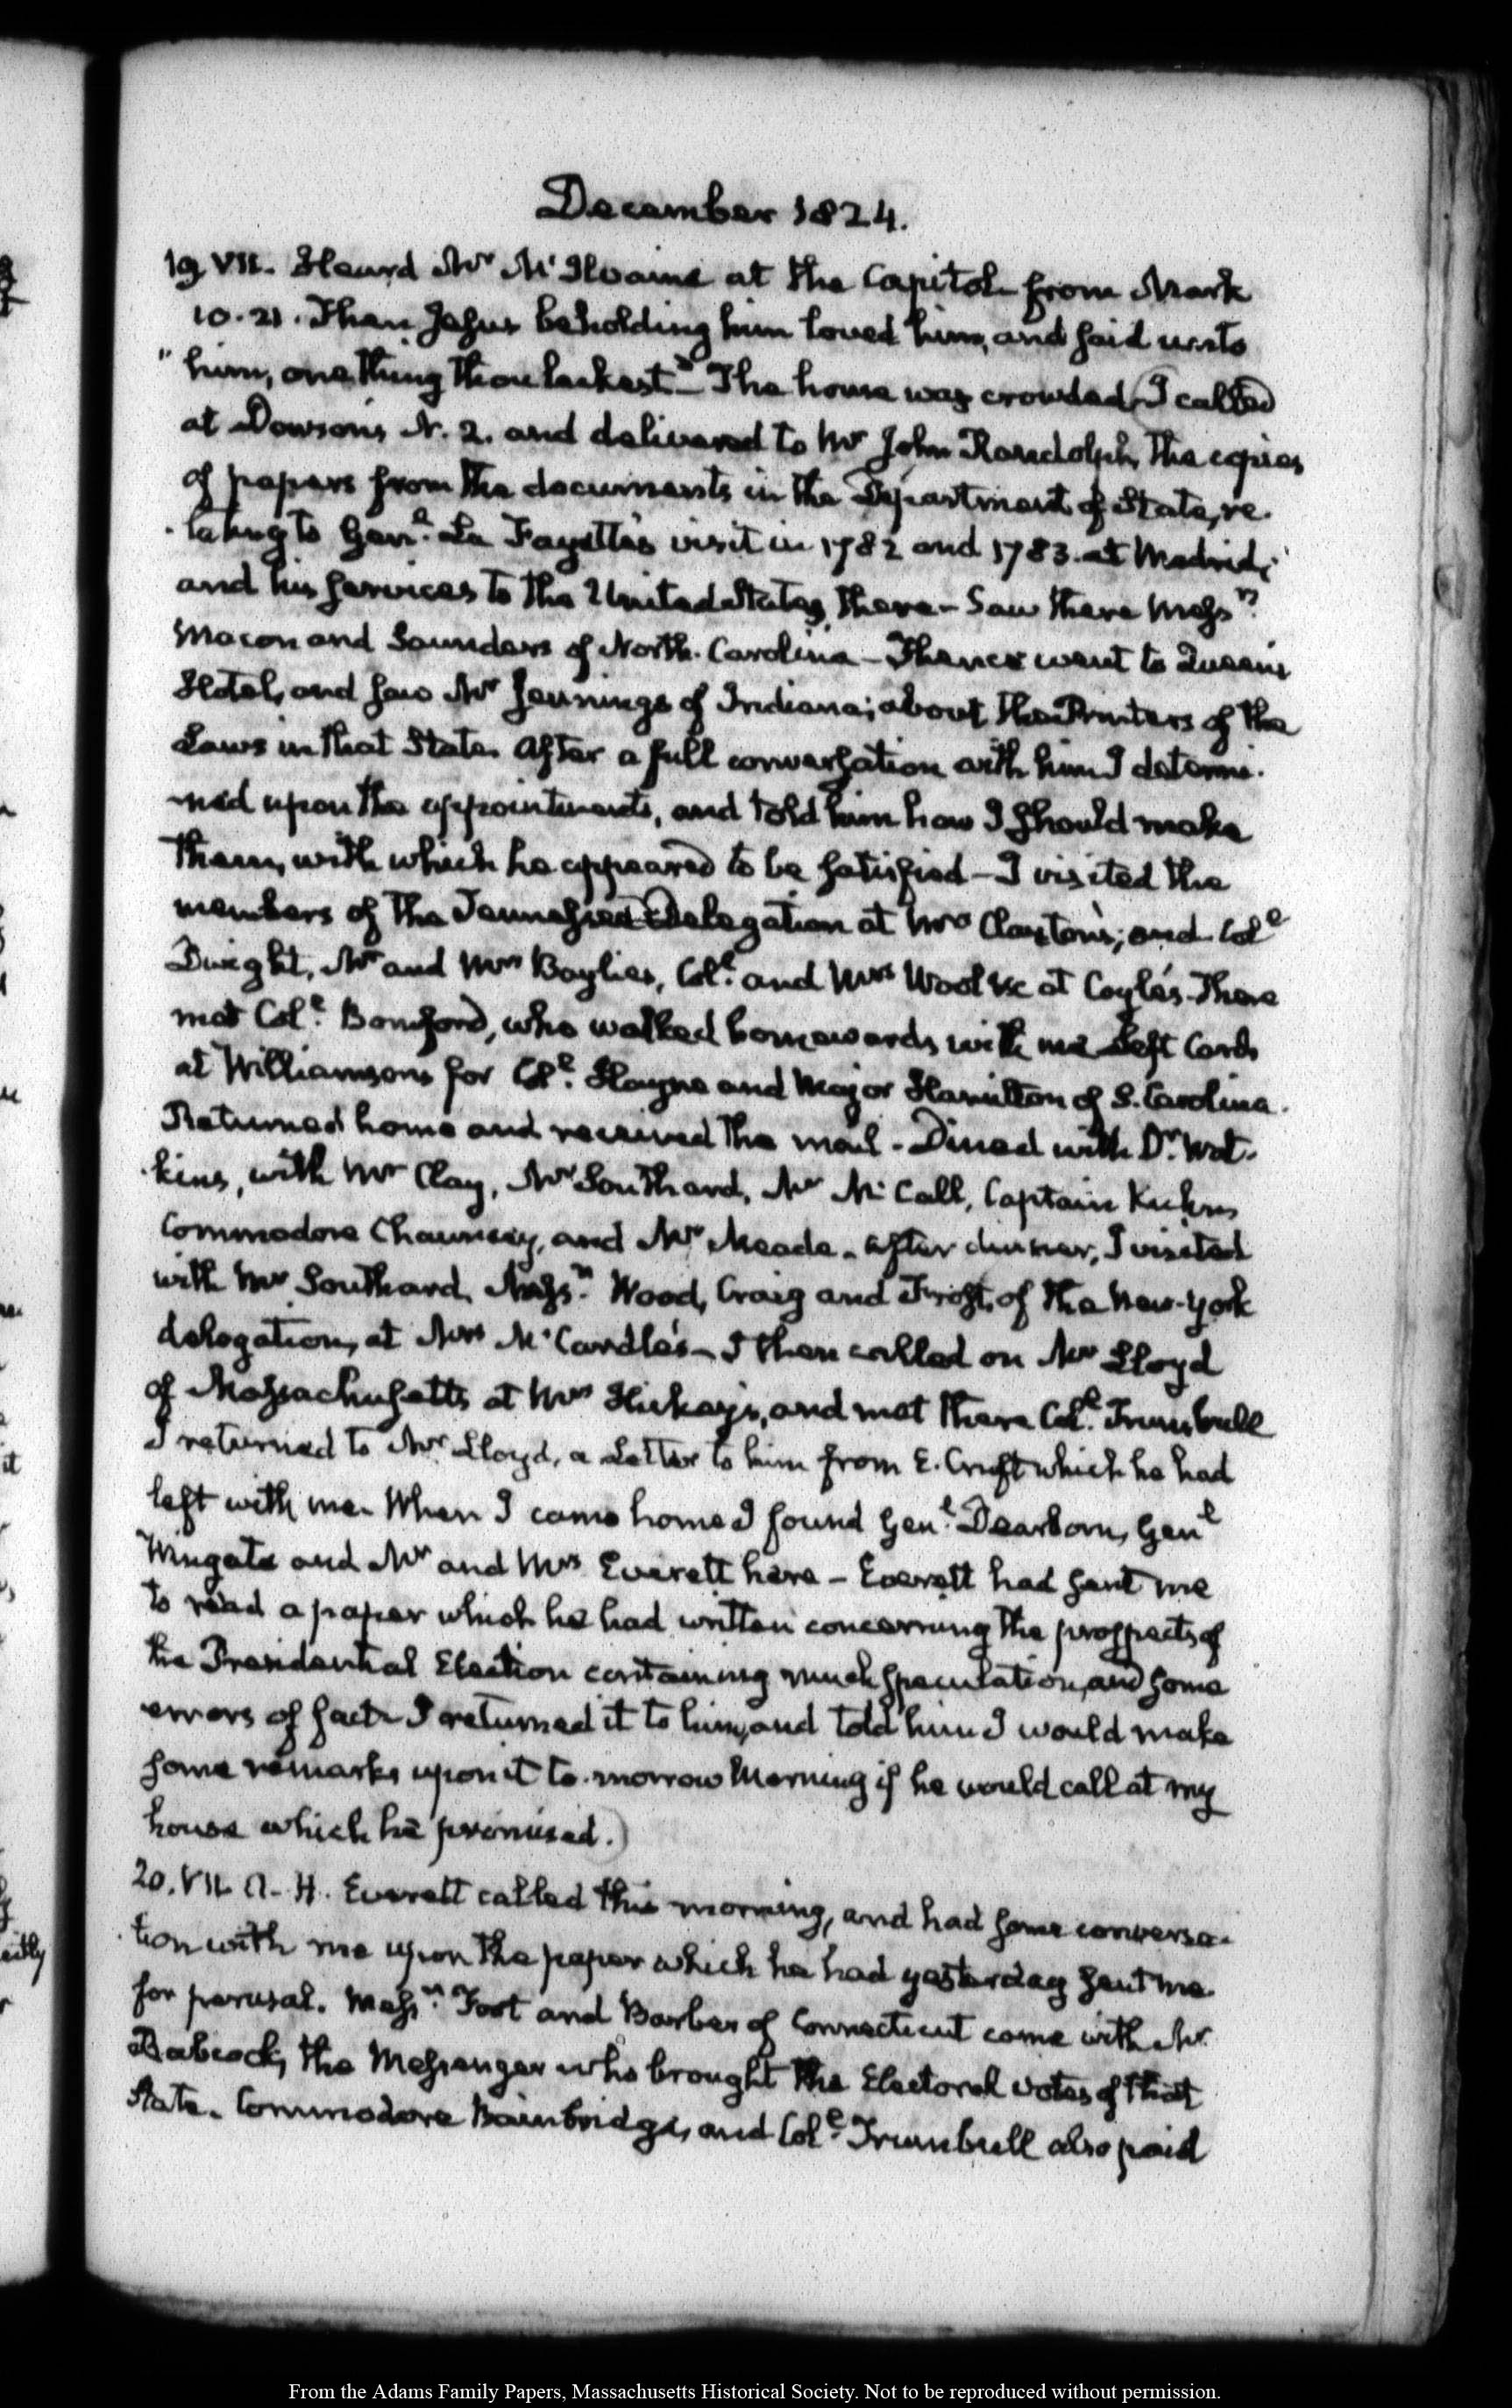 December 1824.
19. VII. Heard Mr McIlvaine at the Capitol from Mark
10. 21. Then Jesus beholding him loved him, and said unto
" him, one thing thou lackest." The house was crowded (I called
at Dowson's N. 2. and delivered to Mr John Randolph, the copies
of papers from the documents in the Department of State, re-
-lating to Genl. La Fayette's visit in 1782 and 1783. at Madrid;
and his services to the United States, there — Saw there Messrs.
Macon and Saunders of North-Carolina — Thence went to Queen's
Hotel, and saw Mr Jennings of Indiana; about the Printers of the
Laws in that State. After a full conversation with him I determi-
-ned upon the appointments, and told him how I should make
them, with which he appeared to be satisfied — I visited the
members of the Tennessee Delegation at Mrs Claxton's; and Coll
Dwight, Mr and Mrs Baylies, Coll. and Mrs Wool &c at Coyle's. There
met Coll. Bomford, who walked homewards with me Left Cards
at Williamson's for Coll. Hayne and Major Hamilton of S. Carolina.
Returned home and received the mail - Dined with Dr. Wat-
-kins, with Mr Clay, Mr Southard, Mr McCall, Captain
Commodore Chauncey, and Mr Meade. After dinner, I visited
with Mr Southard, Messrs. Wood, Craig and Frost, of the New-York
delegation, at Mrs McCardle's — I then called on Mr Lloyd
of Massachusetts at Mrs Hickey's, and met there Coll. Trumbull
I returned to Mr. Lloyd, a Letter to him from E. Cruft which he had
left with me. When I came home I found Genl. Dearborn, Genl
Wingate and Mr and Mrs Everett here — Everett had sent me
to read a paper which he had written concerning the prospects of
the Presidential Election containing much speculation, and some
errors of fact. I returned it to him, and told him I would make
some remarks upon it to-morrow Morning if he would call at my
house which he promised.)
20. VII. A. H. Everett called this morning, and had some conversa-
-tion with me upon the paper which he had yesterday sent me
for perusal. Messrs. Foot and Barber of Connecticut came with Mr.
Babcock, the Messenger who brought the Electoral votes of that
State. Commodore Bainbridge, and Coll. Trumbull also paid
From the Adams Family Papers, Massachusetts Historical Society. Not to be reproduced without permission.